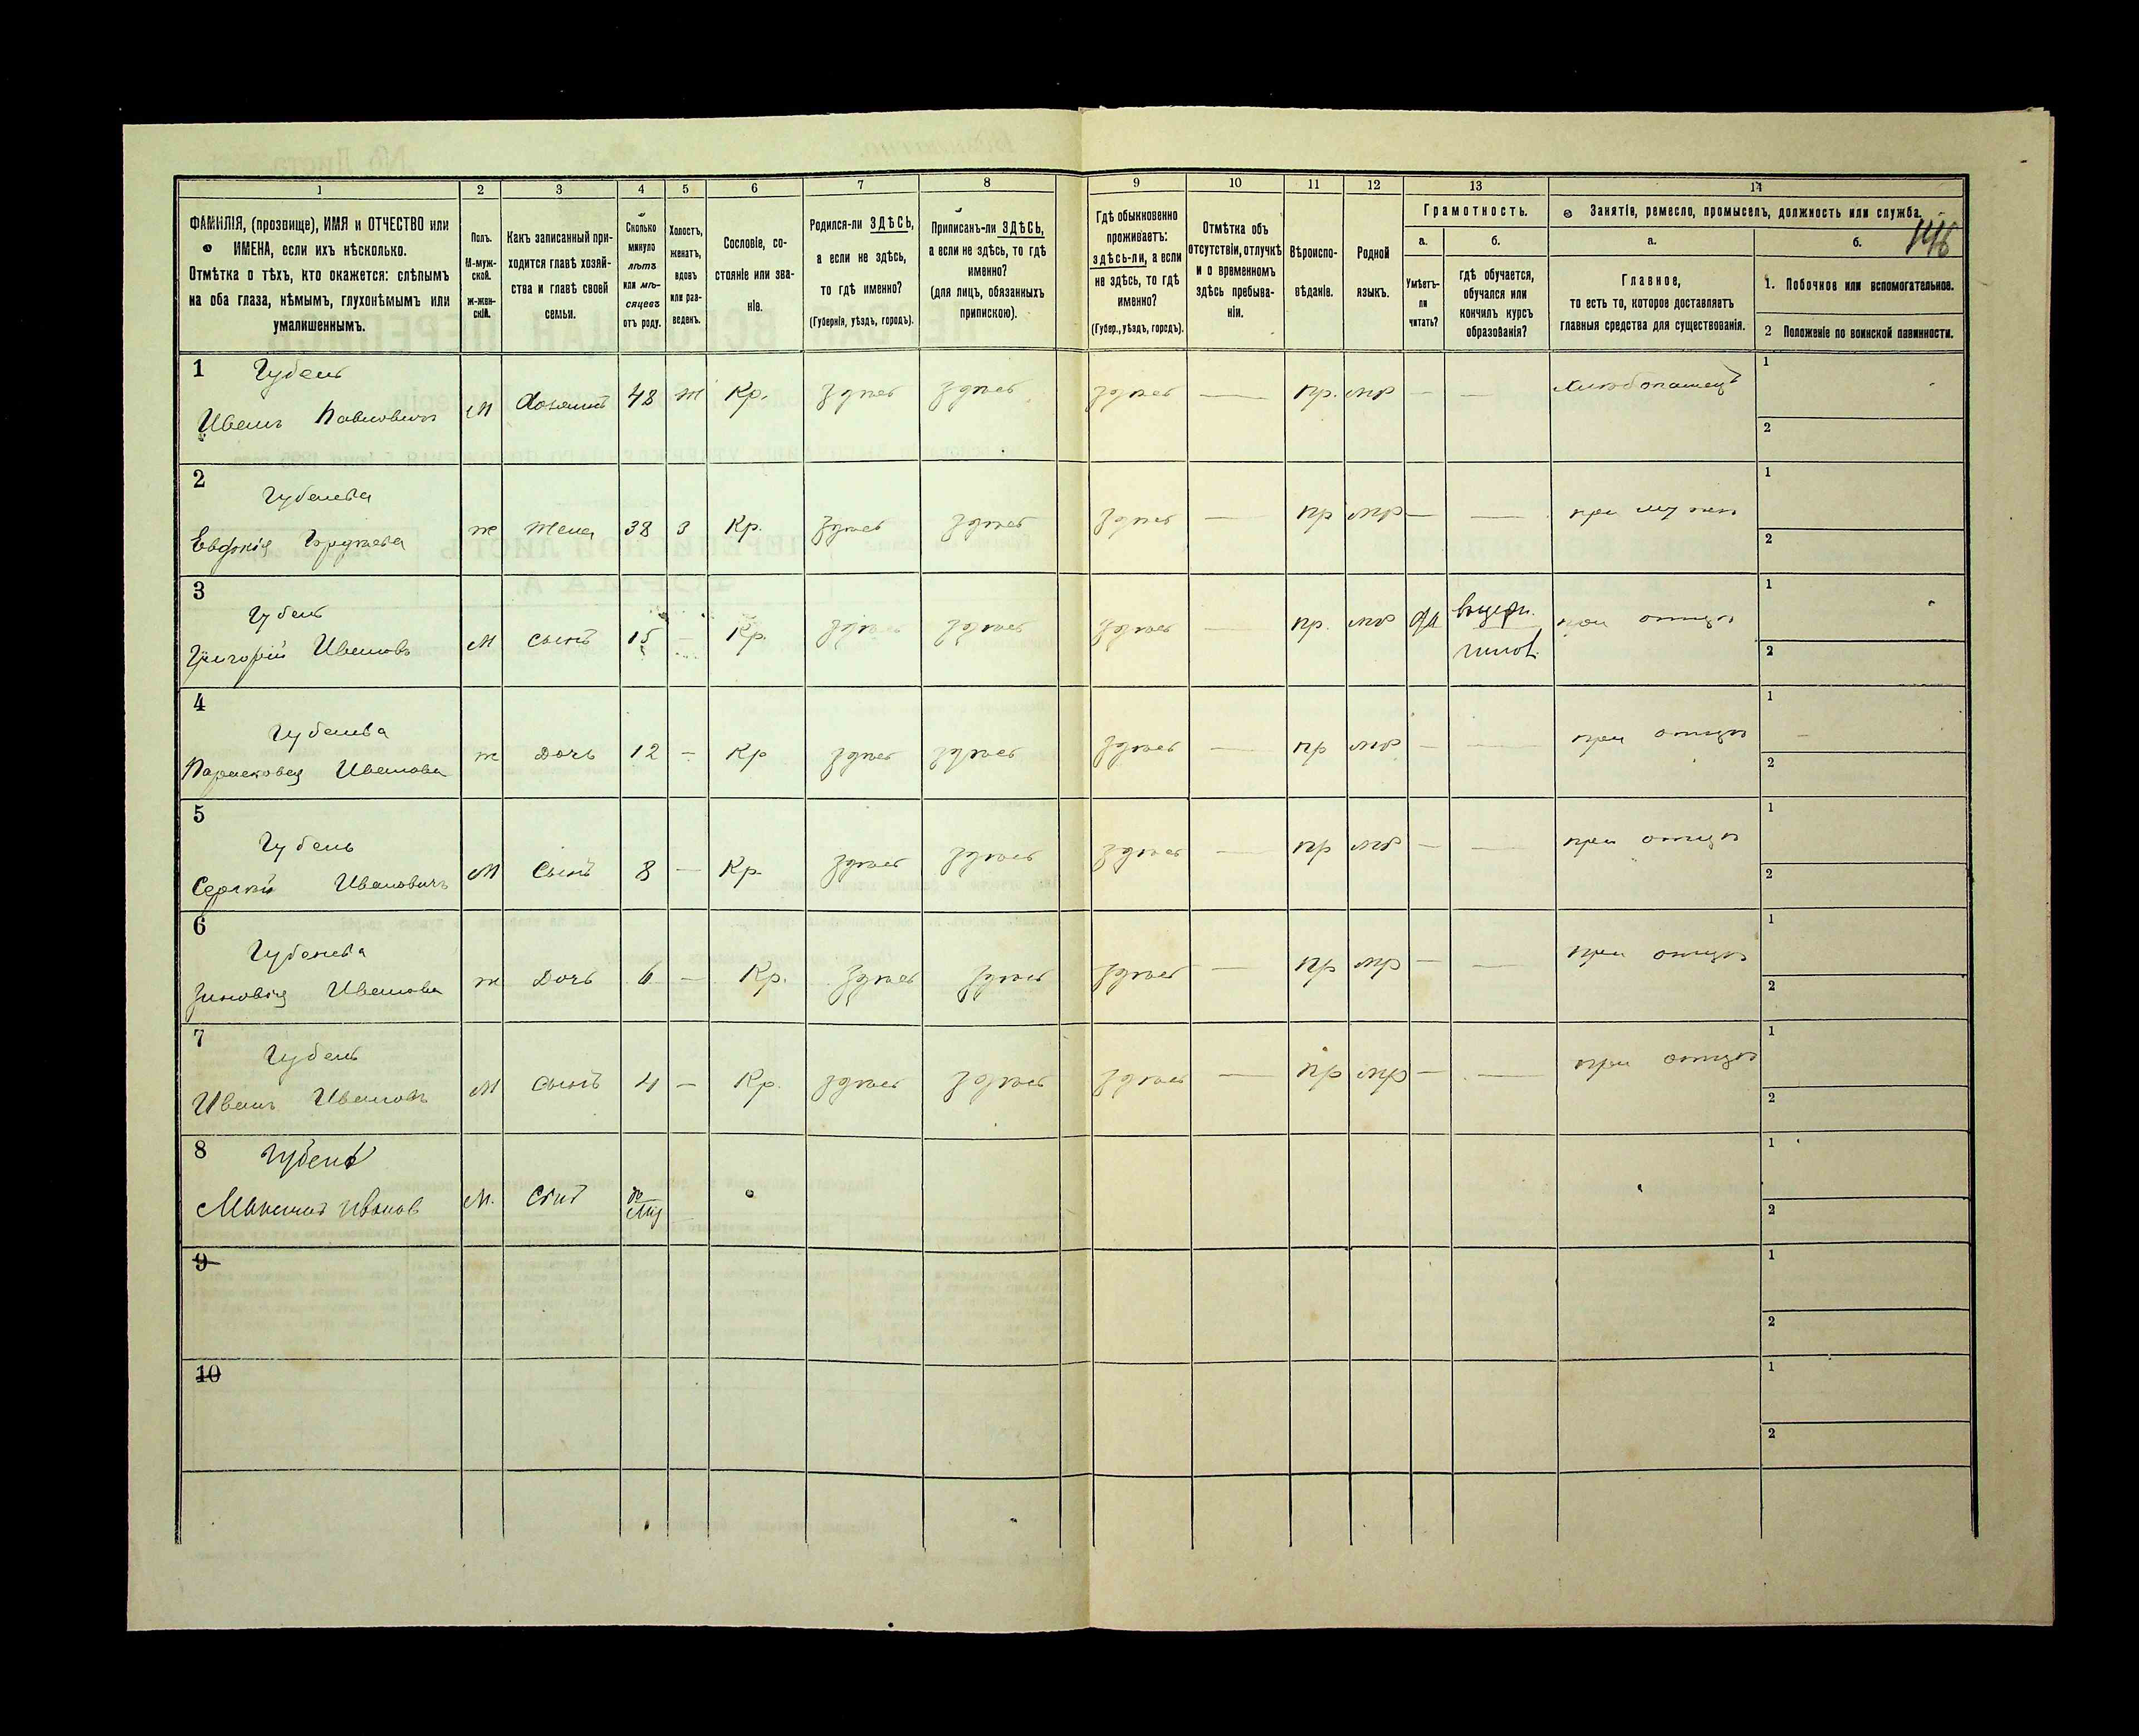 1 2 3 4 5 6 7 8 9 10 11 12 13 14
ФАМИЛІЯ, (прозвище), ИМЯ и ОТЧЕСТВО или
ИМЕНА, если ихъ нѣсколько.
Отмѣтка о тѣхъ, кто окажется: слѣпымъ
на оба глаза, нѣмымъ, глухонѣмымъ или
умалишеннымъ.
Полъ.
М-муж-
ской.
Ж-жен-
скій.
Какъ записанный при-
ходится главѣ хозяй-
ства и главѣ своей
семьи.
Сколько
минуло
лѣтъ
или мѣ-
сяцевъ
отъ роду.
Холостъ,
женатъ,
вдовъ
или раз-
веденъ.
Сословіе, со-
стояніе или зва-
ніе.
Родился-ли ЗДѢСЬ,
а если не здѣсь,
то гдѣ именно?
(Губернія, уѣздъ, городъ).
Приписанъ-ли ЗДѢСЬ,
а если не здѣсь, то гдѣ
именно?
(для лицъ, обязанныхъ
припискою).
Гдѣ обыкновенно
проживаетъ:
здѣсь-ли, а если
не здѣсь, то гдѣ
именно?
(Губер., уѣздъ, городъ).
Отмѣтка объ
отсутствіи, отлучкѣ
и о временномъ
здѣсь пребыва-
ніи.
Вѣроиспо-
вѣданіе.
Родной
языкъ.
Грамотность.
а.
Умѣетъ-
ли
читать?
б.
гдѣ обучается,
обучался или
кончилъ курсъ
образованія?
Занятіе, ремесло, промыселъ, должность или служба.
146
а.
Главное,
то есть то, которое доставляетъ
главныя средства для существованія.
б.
1. Побочное или вспомогательное.
2 Положеніе по воинской павинности.
1 Губень
Иванъ Павловичъ М Хозяинъ 48 ж Кр. здѣсь здѣсь здѣсь — — — Хлѣбопашецъ
1
2
2 Губенева
Евдокія ж Жена 38 з Кр. здѣсь здѣсь здѣсь — — — при
1
2
3 Губень
Григорій Ивановъ М сынъ 15 — Кр. здѣсь здѣсь здѣсь — да при отцѣ
1
2
4 Губенева
Парасковея Иванова ж Дочь 12 — Кр здѣсь здѣсь здѣсь — — — при отцѣ
1
2
5 Губень
Сергѣй Ивановичъ М Сынъ 8 — Кр. здѣсь здѣсь здѣсь — — — при отцѣ
1
2
6 Губенева
Зиновія Иванова ж Дочь 6 — Кр. здѣсь здѣсь здѣсь — — — при отцѣ
1
2
7 Губень
Иванъ Ивановъ М сынъ 4 — Кр. здѣсь здѣсь здѣсь — — — при отцѣ
1
2
8 Губень
Максимъ Иванов М. Сынъ
1
2
9
1
2
10
1
2